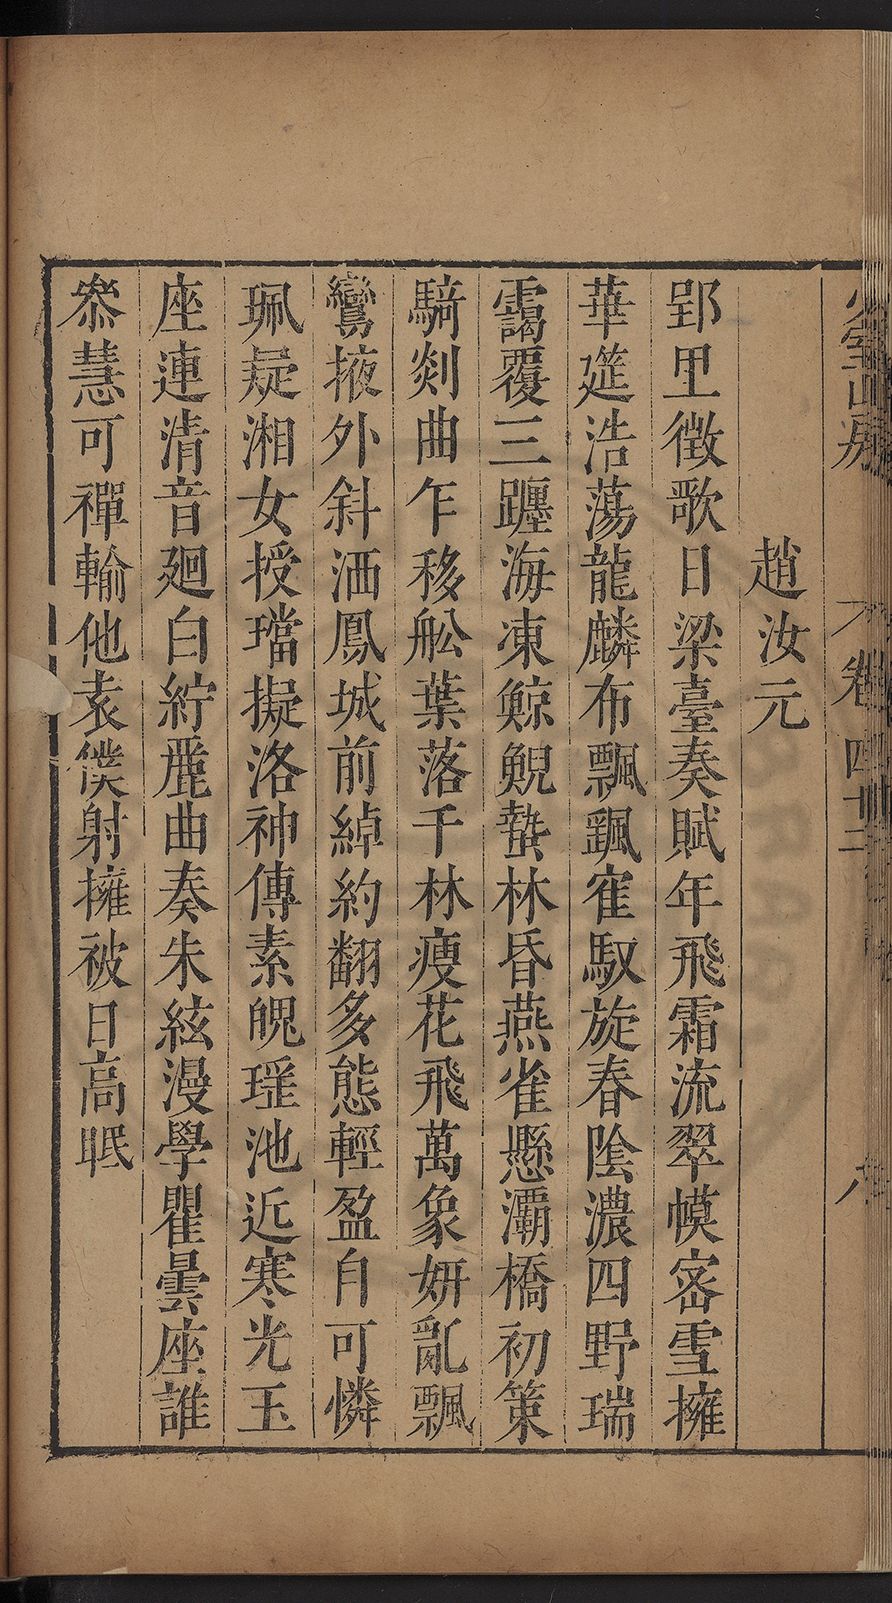 少室山房 卷四十二 八
趙汝元
郢里徵歌日梁臺奏賦年飛霜流翠幙密雪擁
華筵浩蕩龍麟布飄颻隺馭旋春陰濃四野瑞
靄覆三躔海凍鯨鯢蟄林昏燕雀懸灞橋初策
騎剡曲乍移舩葉落千林瘦花飛萬象妍亂飄
鸞掖外斜洒鳳城前綽約翻多態輕盈自可憐
珮疑湘女授璫擬洛神傳素魄瑶池近寒光玉
座連清音廻白紵麗曲奏朱絃漫學瞿曇座誰
叅慧可禪輸他袁僕射擁被日高眠